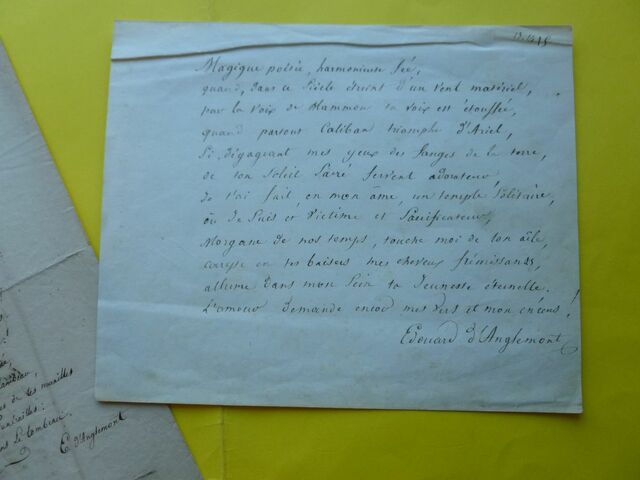 Magique poésie, harmonieuse fée,
quand, dans ce siècle éteint d'un vent matériel,
par la voix de Mammon ta voix est étouffée,
quand partout Caliban triomphe d'Ariel,
Si dégageant mes yeux des fanges de la terre,
de ton Soleil Sacré fervent adorateur,
Je t'ai fait, en mon âme, un temple Solitaire,
où Je Suis et Victime et Sacrificateur,
Morgane de nos temps, touche moi de ton aile,
en tes baisers mes cheveux frémissants,
allume dans mon Sein ta Jeunesse éternelle.
L'amour demande encor mes vers et mon encens!
Edouard d'Anglemont
de tes
Le tombeau.
E d'Anglemont